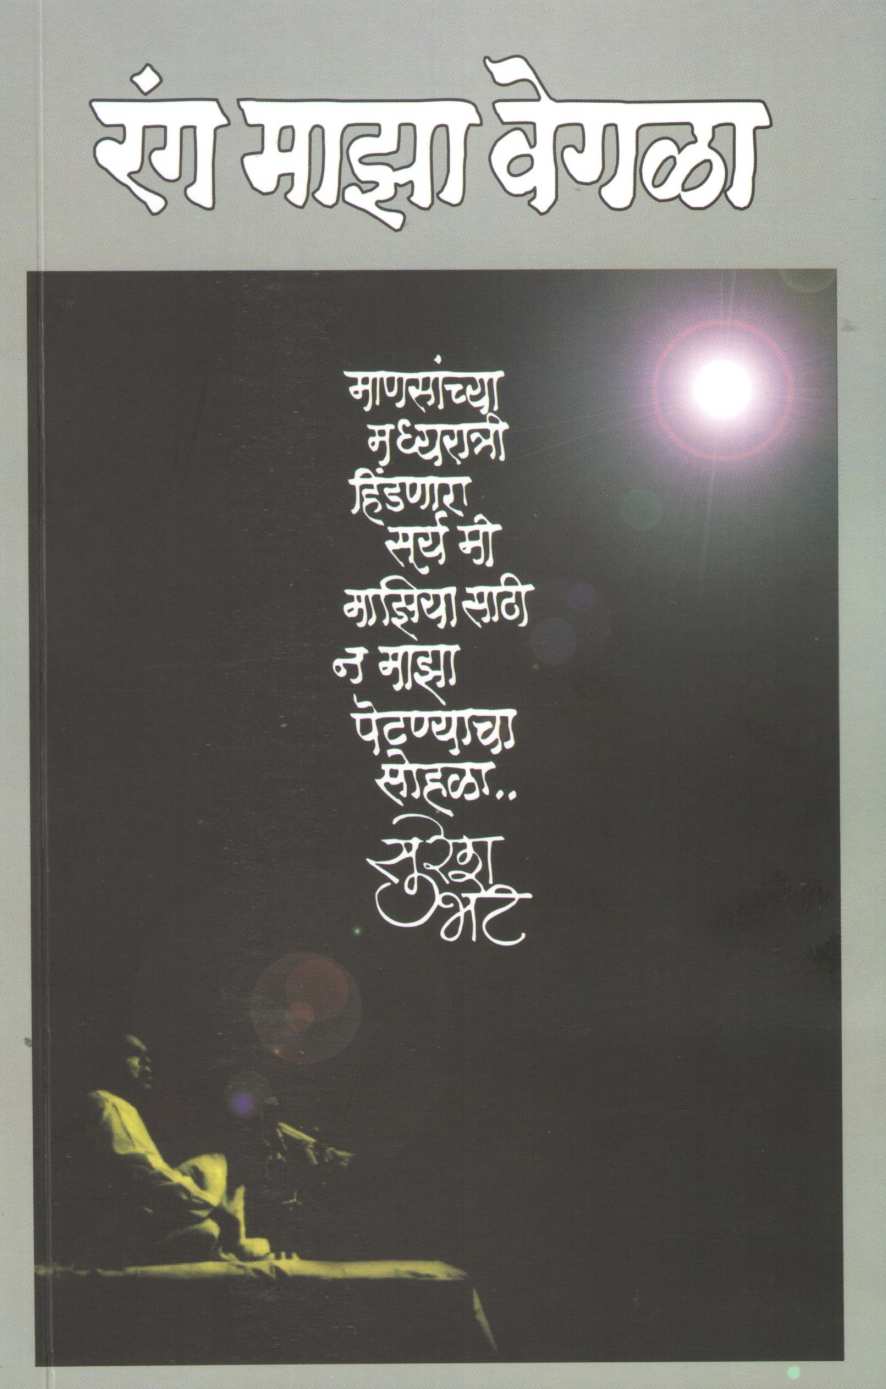 रंग माझा वेगळा
माणसांच्या
मध्यरात्री
हिंडणारा
सूर्य मी
माझियासाठी
न माझा
पेटण्याचा
सोहळा..
सुरेश
भट